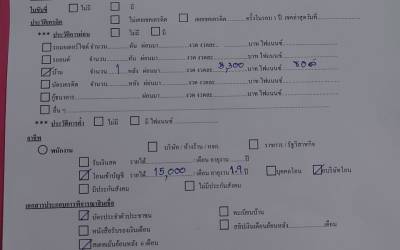 ในชื่อนี้ ☐ ไม่มี ☐ มี
ประวัติเครดิต ☐ ไม่เคยเครดิต ☐ เคยเครดิต ครั้งในรอบ 1 ปี เคยล่าสุดวันที่
*** ประวัติการผ่อน ☐ ไม่มี ☐ มี
☐ รถมอเตอร์ไซค์ จำนวน คัน ผ่อนมา งวด งวดละ บาท ไฟแนนซ์
☐ รถยนต์ จำนวน คัน ผ่อนมา งวด งวดละ บาท ไฟแนนซ์
☑ บ้าน จำนวน 1 หลัง ผ่อนมา งวด งวดละ 8,300 บาท ไฟแนนซ์ ธอส
☐ บัตรเครดิต จำนวน ผ่อนมา งวด งวดละ บาท ไฟแนนซ์
☐ กู้ธนาคาร ผ่อนมา งวด งวดละ บาท ไฟแนนซ์
☐ อื่น ๆ
*** ประวัติการค้ำ ☐ ไม่มี ☐ มี ไฟแนนซ์
อาชีพ
พนักงาน ☐ บริษัท / ห้างร้าน / หจก. ☐ ราชการ / รัฐวิสาหกิจ
☐ รับเงินสด รายได้ /เดือน อายุงาน ปี
☑ โอนเข้าบัญชี รายได้ 15,000 /เดือน อายุงาน 1.9 ปี ☐ บุคคลโอน ☑ บริษัทโอน
☐ มีประกันสังคม ☐ ไม่มีประกันสังคม
เอกสารประกอบการพิจารณาสินเชื่อ
☑ บัตรประจำตัวประชาชน ☐ ทะเบียนบ้าน
☐ หนังสือรับรองเงินเดือน ☐ สลิปเงินเดือนย้อนหลัง เดือน
☑ สเตทเม้นย้อนหลัง 6 เดือน